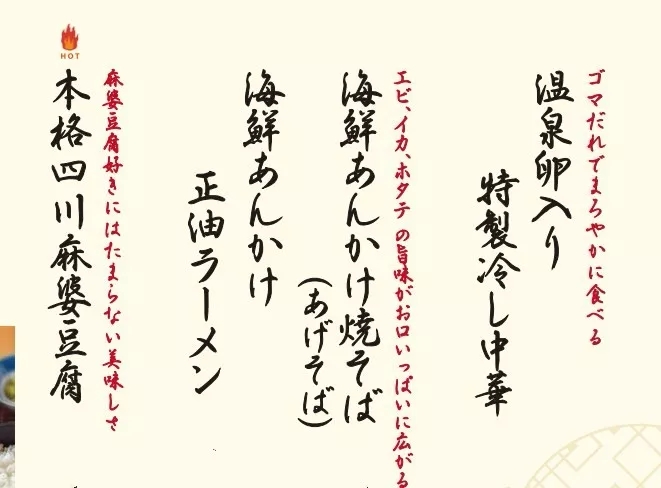 ゴマだれでまろやかに食べる
温泉卵入り
特製冷し中華
エビ、イカ、ホタテの旨味がお口いっぱいに広がる
海鮮あんかけ焼そば
(あげそば)
海鮮あんかけ
正油ラーメン
麻婆豆腐好きにはたまらない美味しさ
HOT
本格四川麻婆豆腐